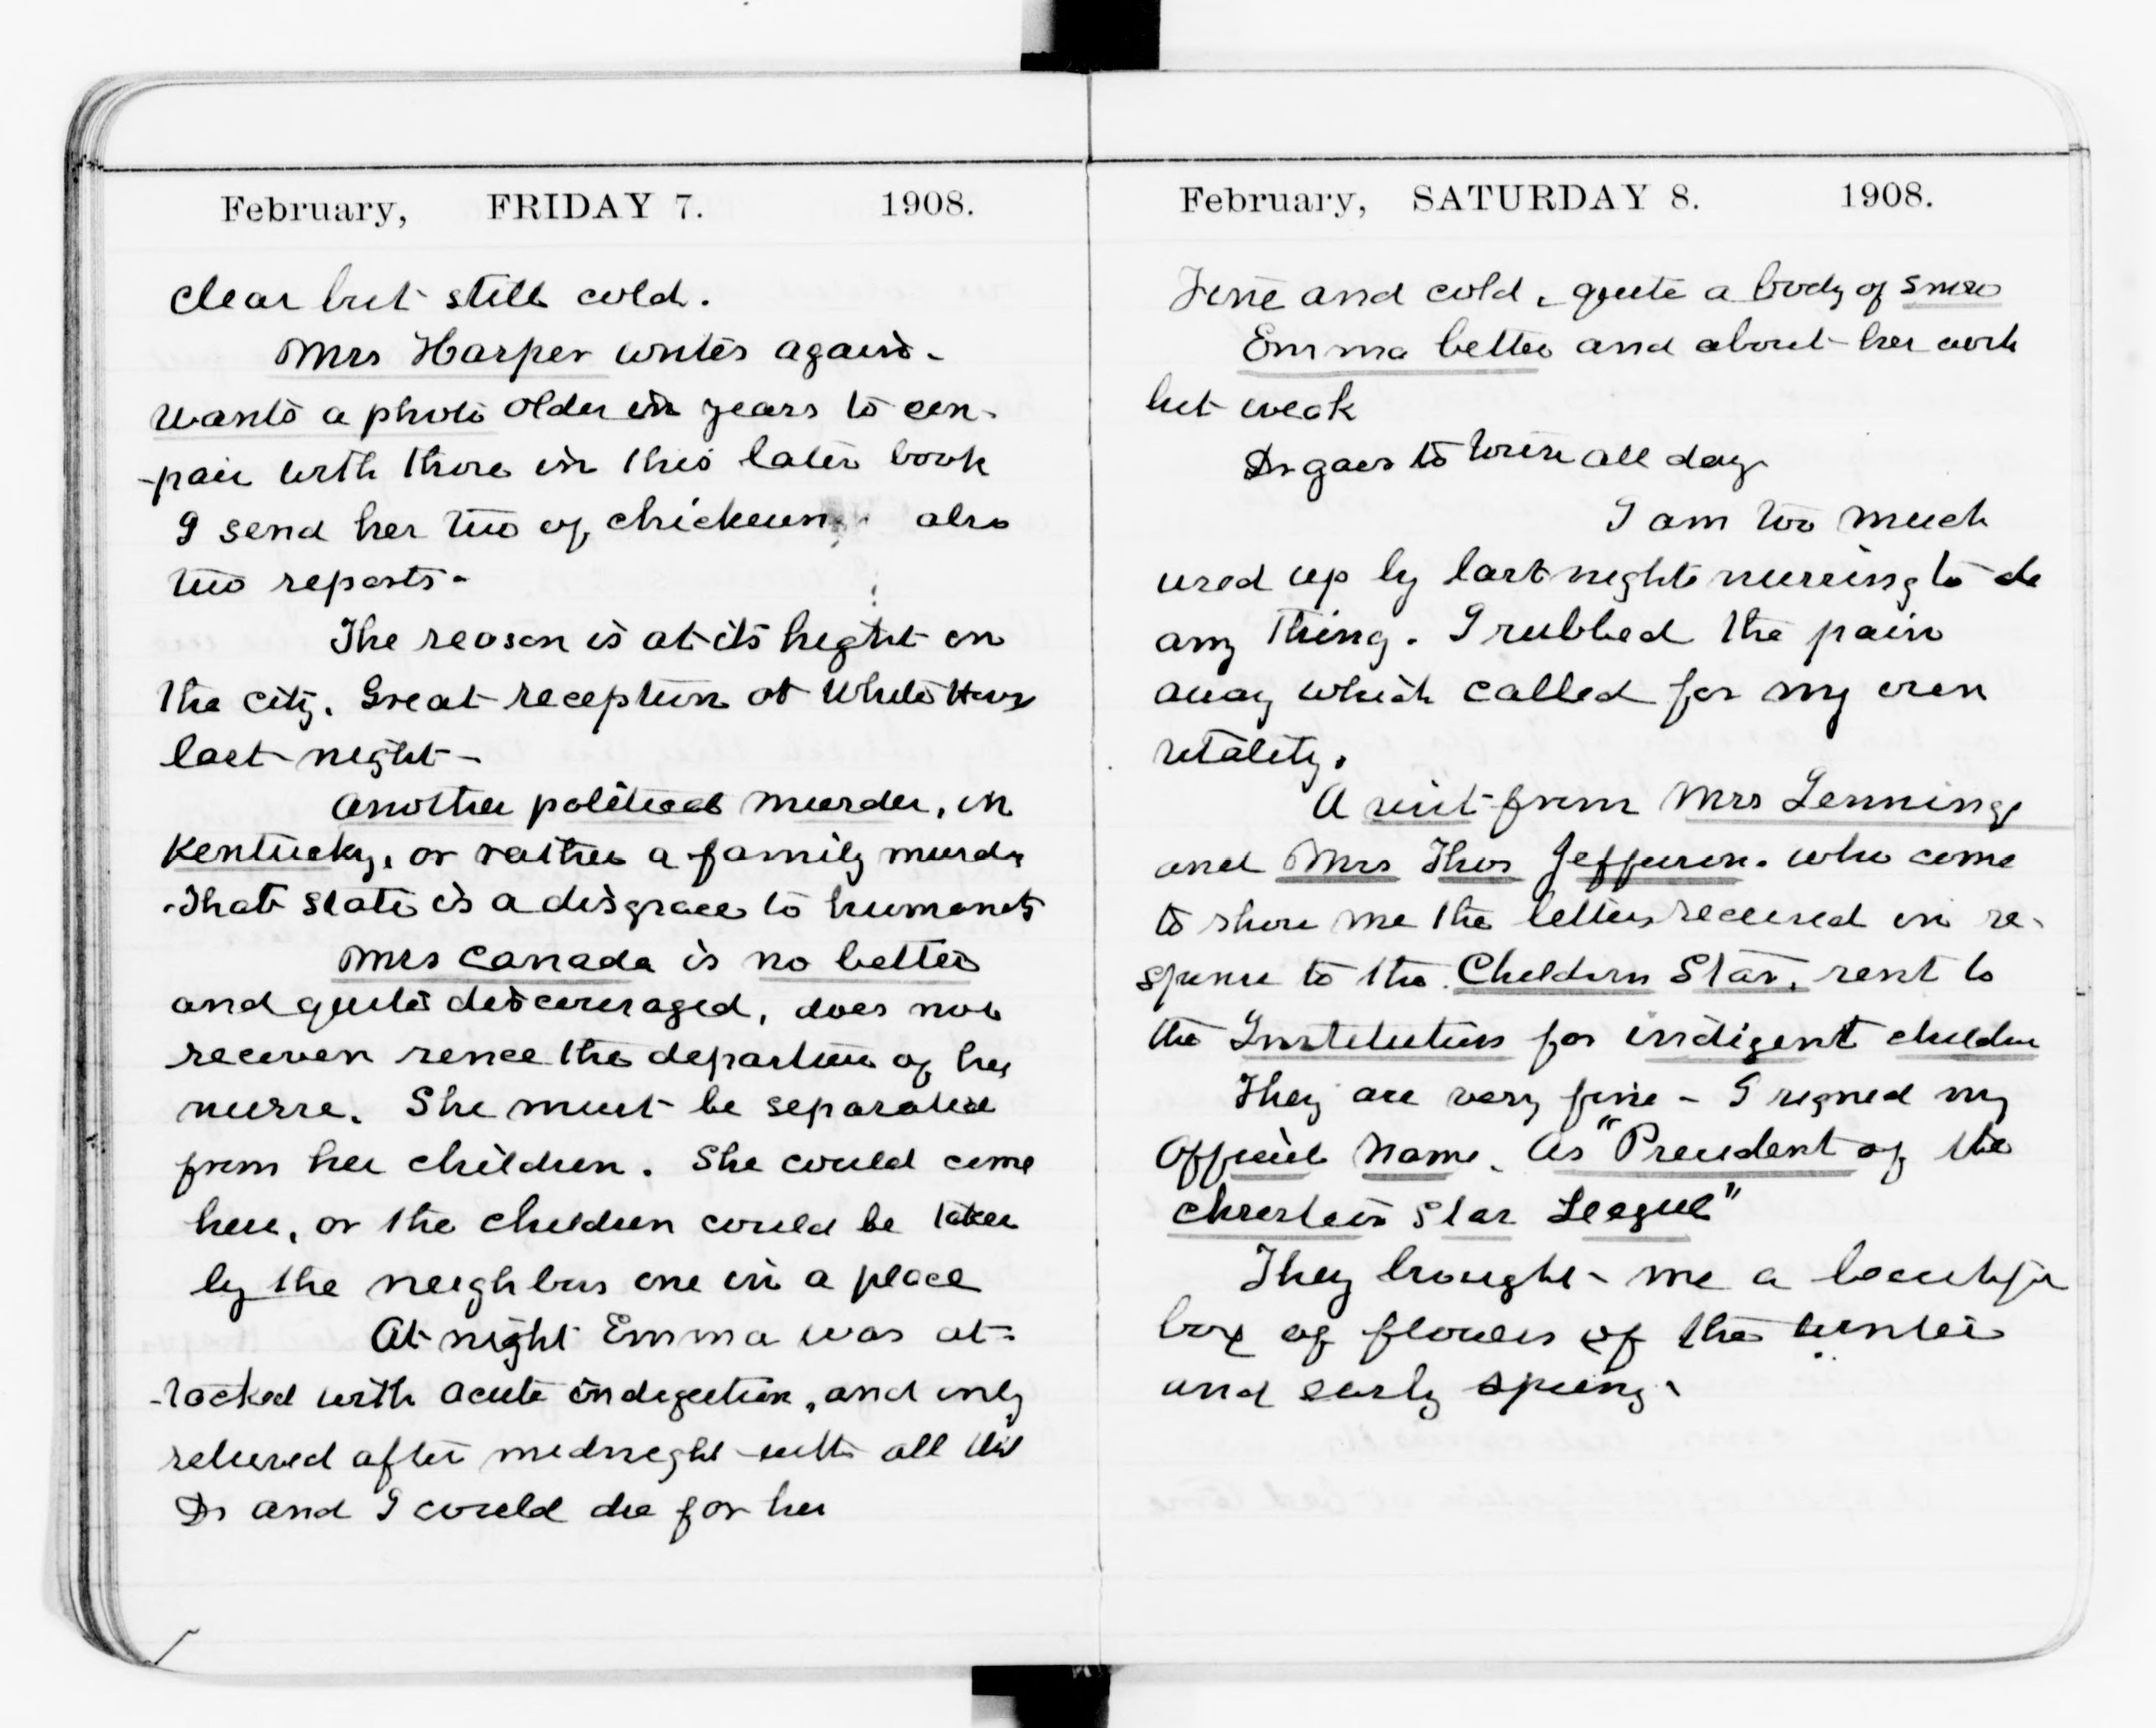 February, FRIDAY 7. 1908.
Clear but still cold.
Mrs Harper writes again.
Wants a photo older in years to com-
-pair with those in this later book
I send her two of chickering also
two reports.
The season is at its hight in
the city. Great reception at White House
last night -
Another political murder, in
Kentucky, or rather a family murder
That State is a disgrace to humanity
Mrs Canada is no better
and quite discouraged, does not
recover since the departure of her
nurse. She must be separated
from her children. She could come
here, or the children could be taken
by the neighbors one in a place
At night Emma was at-
-tacked with acute indigestion, and only
relieved after midnight with all that
Dr and I could do for her
February, SATURDAY 8. 1908.
Fine and cold, quite a body of snow
Emma better and about her work
but weak
Dr goes to town all day
I am too much
used up by last nights nursing to do
any thing. I rubbed the pain
away which called for my own
vitality.
A visit from Mrs
and Mrs Thos Jefferson. who come
to show me the letters received in re-
sponse to the Children Star, sent to
the Institutions for indigent children
They are very fine - I signed my
Official Name, As "President of the
Christian Star League"
They brought me a beautiful
box of flowers of the winter
and early spring.